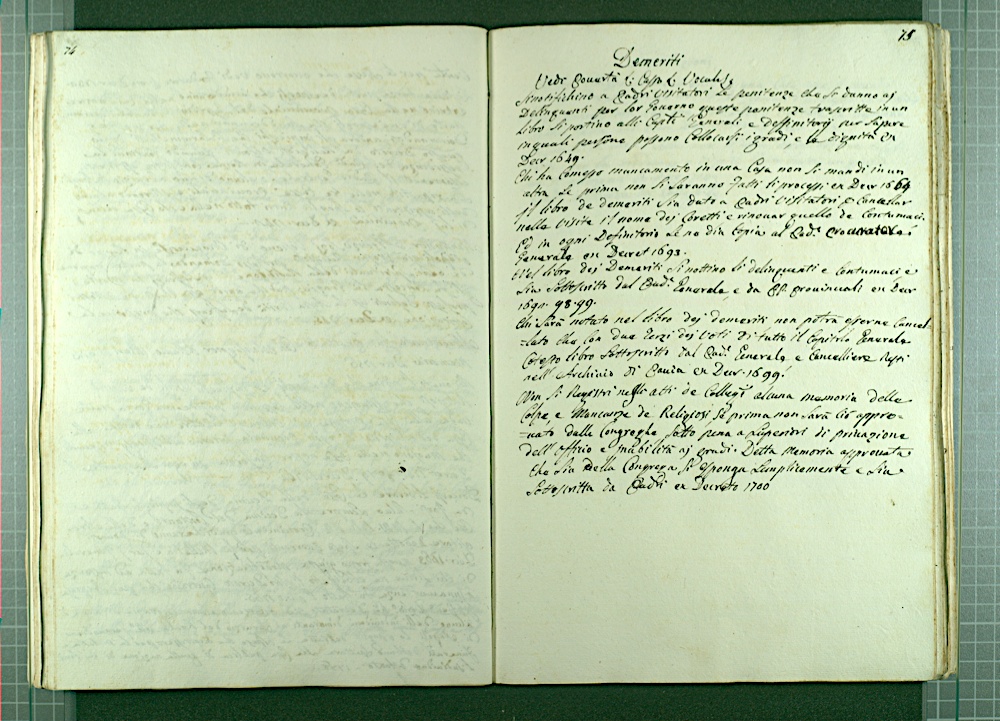 74
75
Demeriti
Vedi Povertà L: Casa L: Vocali
Si notifichino a Padri Visitatori le penitenze che si danno aj
Delinquenti per lor Governo queste penitenze trascritte in un
libro si portino alli Capit.i Generali e Deffinitorij per sapere
in quali persone possono Collocarsi i gradi, e la Dignità ex
Decr 1649.
Chi ha Comesso mancamento in una Casa non si mandi in un
altra se prima non si saranno fatti li processi ex Decr 1664
Il libro de demeriti sia dato a Padri Visitatori p Cancellar
nella Visita il nome dej Coretti e rinovar quello de Contumaci.
Ed in ogni Definitorio se ne dia Copia al Pad.e Procuratore
Generale ex Decret 1693.
Nel libro dej Demeriti si nottino li delinquenti e Contumaci e
sia sottoscritto dal Pad.e Generale, e da PP. provinciali ex Decr
1694. 98. 99.
Chi sarà notato nel libro dej demeriti non potrà esserne Cancel
-lato che con due terzi dej Voti di tutto il Capitolo Generale
Cotesto libro sottoscritto dal Pad.e Generale e Cancelliere Resti
nell'Archivio di Pavia ex Decr. 1699.
Non si Registri negli atti de Collegi alcuna memoria delle
Colpe, e Mancanze de Religiosi se prima non sarà ciò appro=
=vato dalla Congreg.ne sotto pena a Superiori di privazione
dell'officio e inabilità aj gradi. Detta memoria approvata
che sia dalla Congrega si esponga semplicemente e sia
sottoscritta da Padri ex Decreto 1700